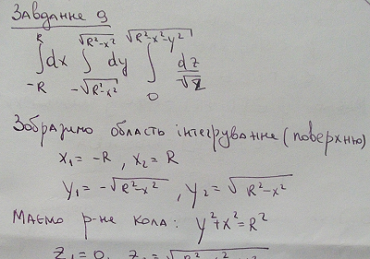 Завдання 9
∫_{-R}^{R} dx ∫_{-√(R²-x²)}^{√(R²-x²)} dy ∫_{0}^{√(R²-x²-y²)} dz/√z
Зобразимо область інтегрування (поверхню)
x₁ = -R, x₂ = R
y₁ = -√(R²-x²), y₂ = √(R²-x²)
Маємо р-не кола: y²+x²=R²
z₁ = 0, z₂ = √(R²-x²-y²)